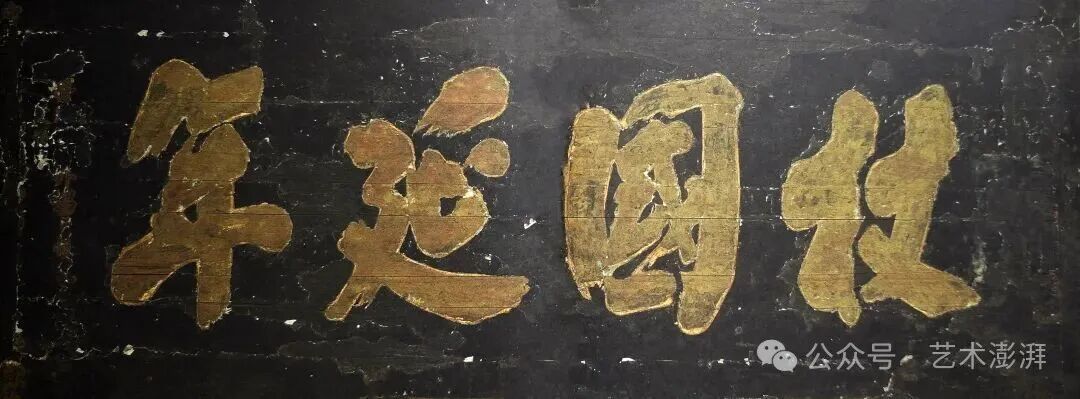 杖國延年
公众号 · 艺术澎湃